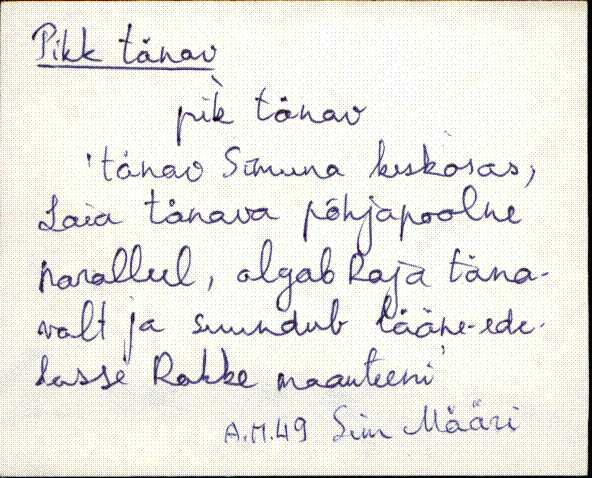 Pikk tänav
pik̀ tänav
'tänav Simuna keskosas,
Laia tänava põhjapoolne
parallel, algab Raja täna-
valt ja suundub lääne-ede-
lasse Rakke maanteeni'
A.M.49 Sim Määri